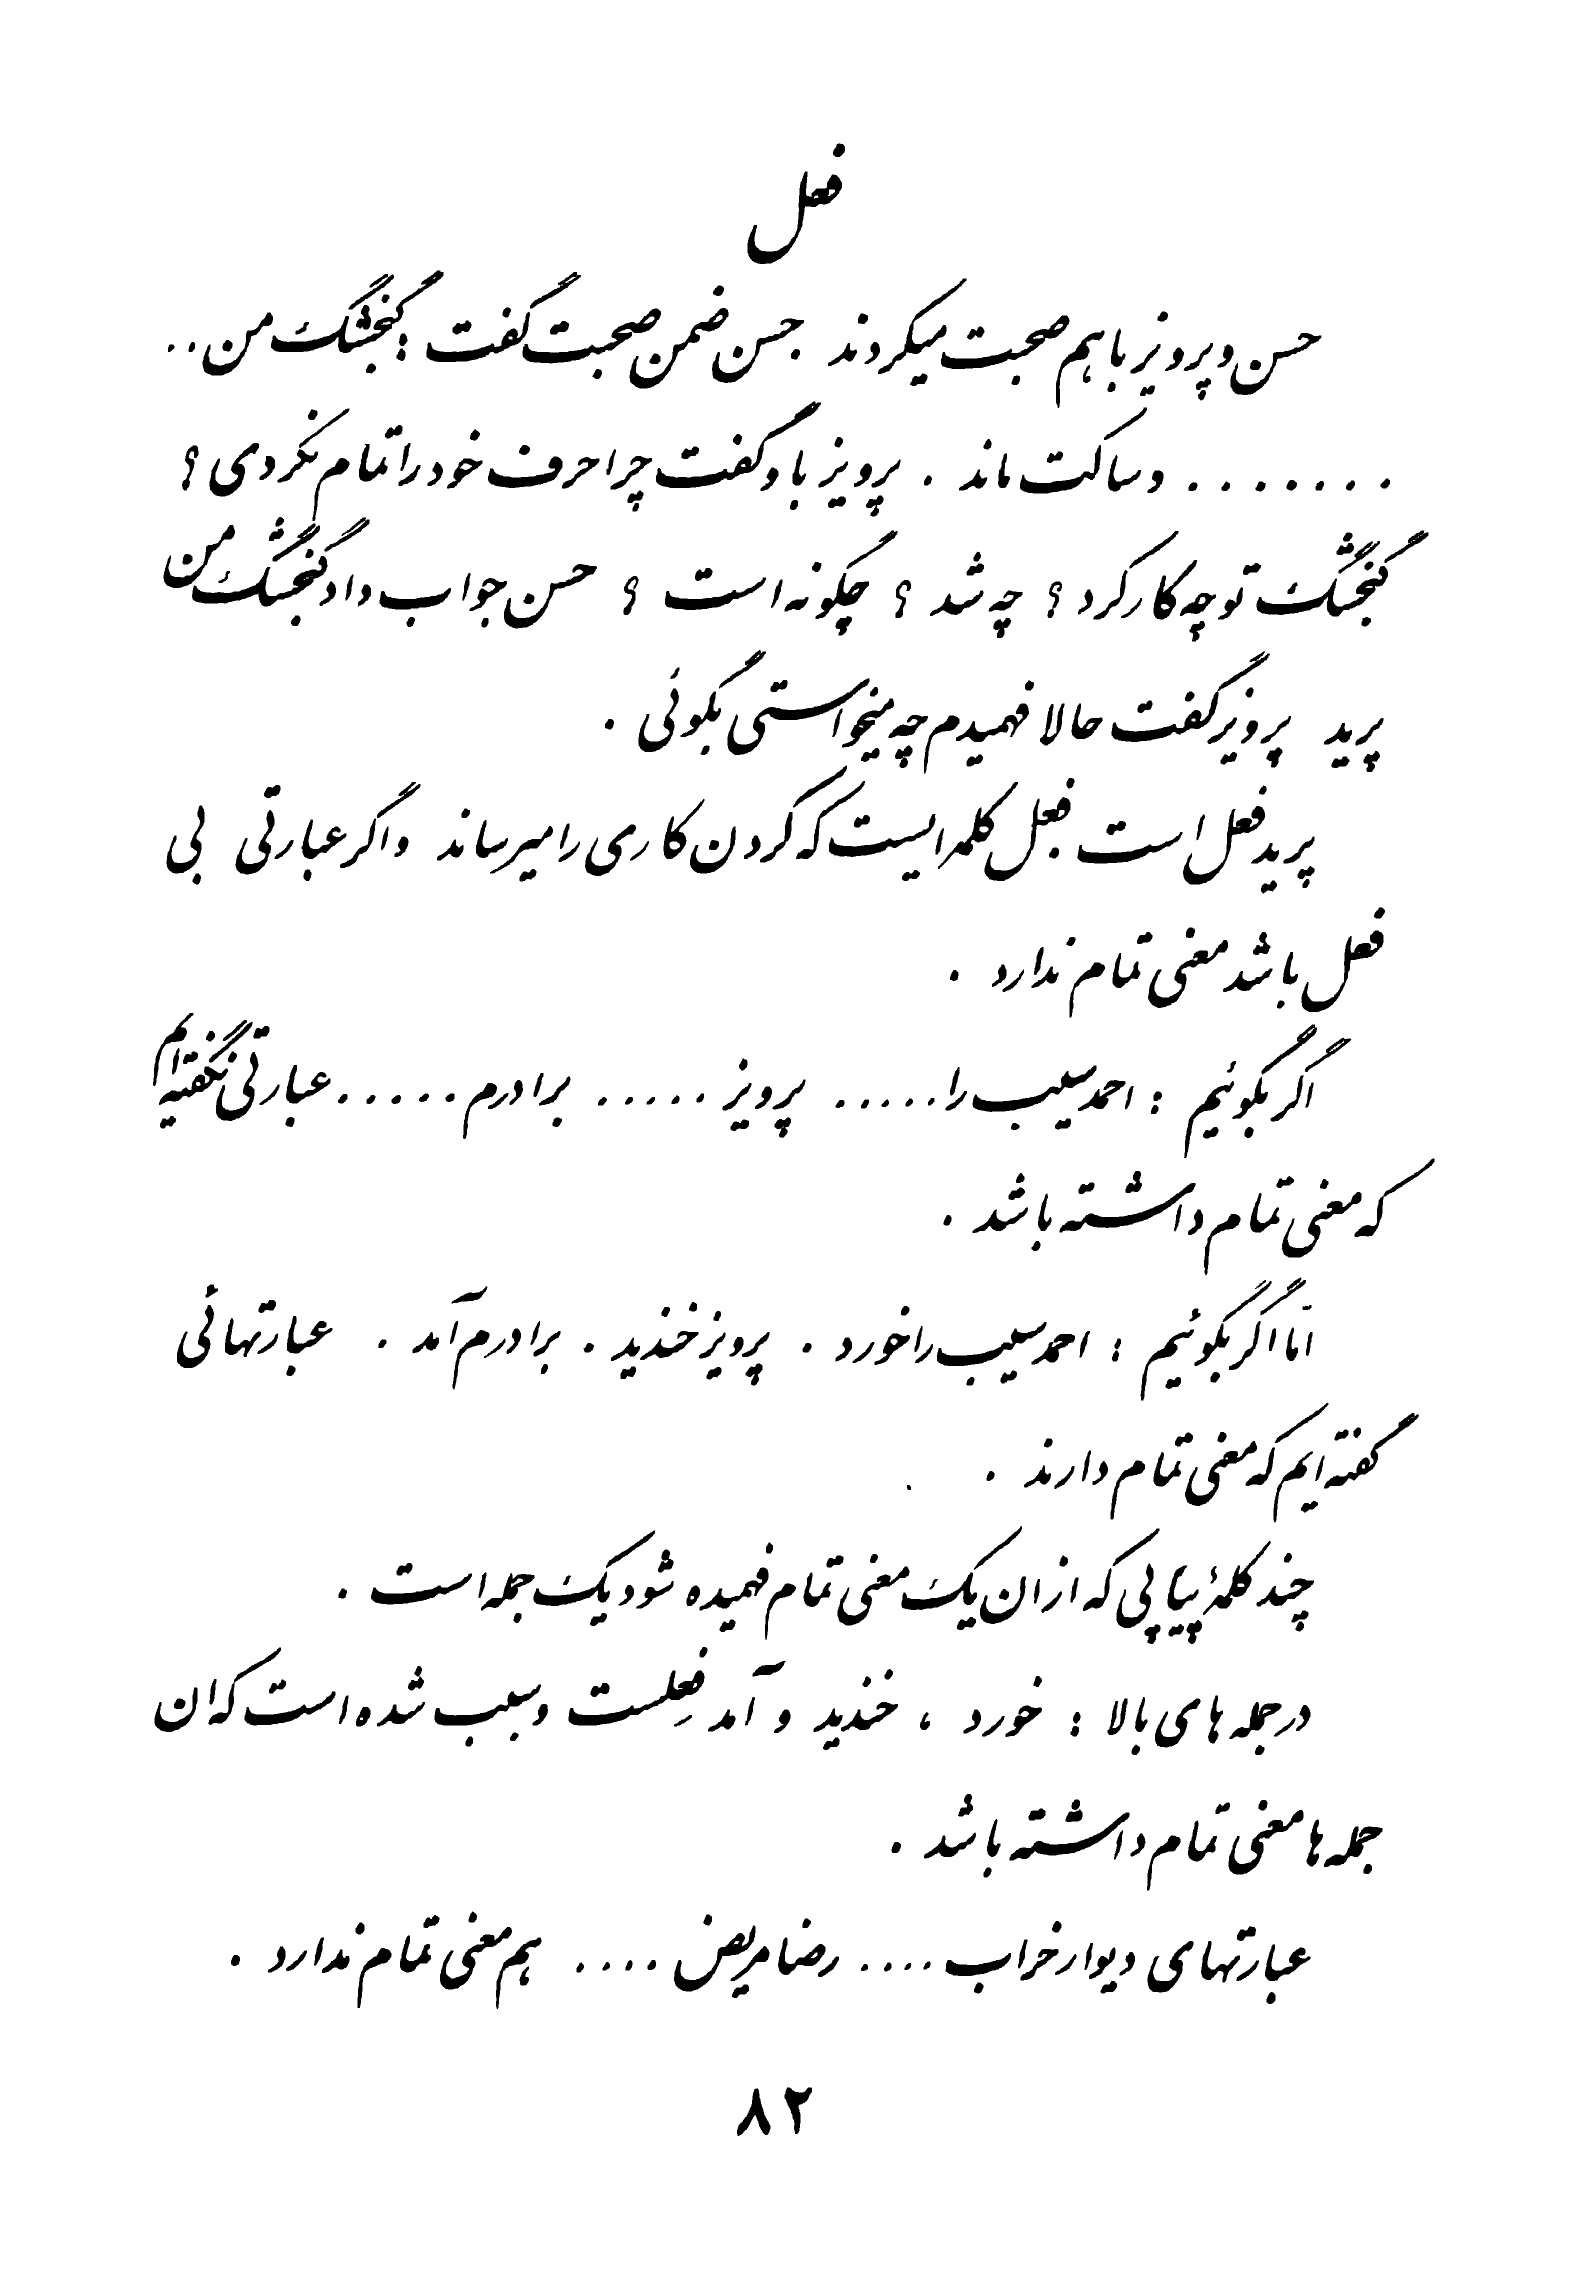 فعل
حسن و پرویز با هم صحبت میکردند . حسن ضمن صحبت گفت : گنجشگ من ..
. . . . . . . و ساکت ماند . پرویز باو گفت چرا حرف خود را تمام نکردی ؟
گنجشگ تو چه کار کرد ؟ چه شد ؟ چگونه است ؟ حسن جواب داد گنجشگ من
پرید پرویز گفت حالا فهمیدم چه میخواستی بگوئی .
پرید فعل است . فعل کلمه ایست که کردن کاری را میرساند و اگر عبارتی بی
فعل باشد معنی تمام ندارد .
اگر بگوئیم : احمد سیب را ..... پرویز ..... برادرم ..... عبارتی نگفته ایم
که معنی تمام داشته باشد .
امّا اگر بگوئیم : احمد سیب را خورد . پرویز خندید . برادرم آمد . عبارتهائی
گفته ایم که معنی تمام دارند .
چند کلمهٔ پیاپی که از ان یک معنی تمام فهمیده شود یک جمله است .
در جمله های بالا : خورد ، خندید و آمد فِعلست و سبب شده است که ان
جمله ها معنی تمام داشته باشد .
عبارتهای دیوار خراب .... رضا مریض .... هم معنی تمام ندارد .
۸۲